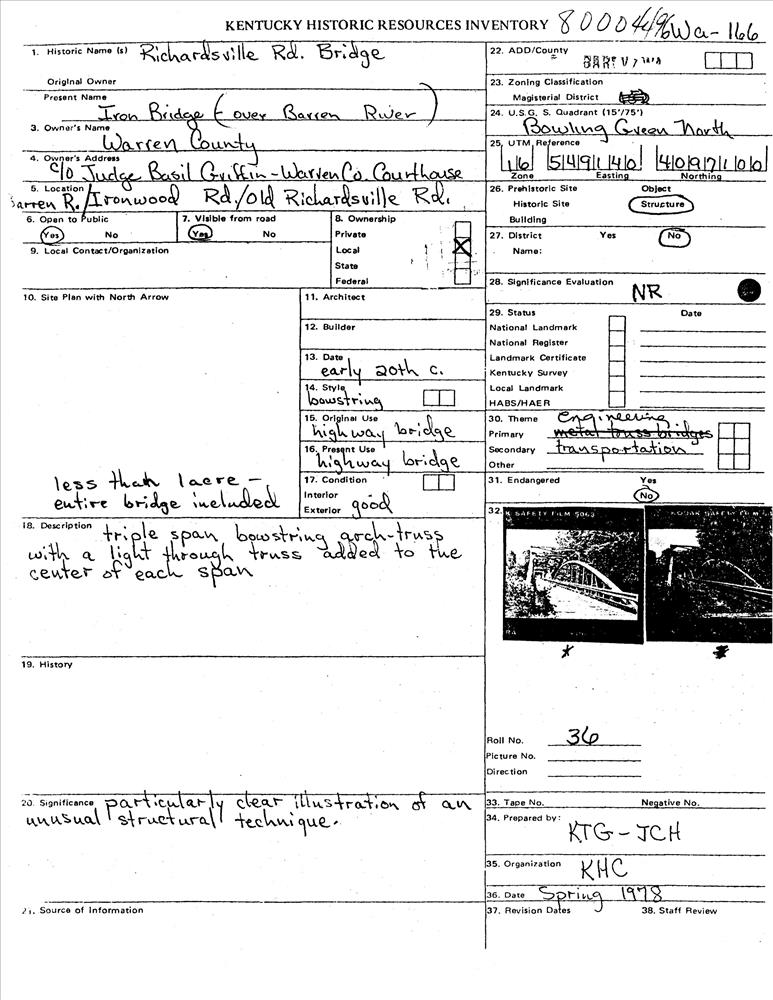 KENTUCKY HISTORIC RESOURCES INVENTORY 80004496 Wa-166
1. Historic Name (s) Richardsville Rd. Bridge
Original Owner
Present Name
Iron Bridge (over Barren River)
3. Owner's Name
Warren County
4. Owner's Address
c/o Judge Basil Griffin-Warren Co. Courthouse
5. Location
Barren R./Ironwood Rd./Old Richardsville Rd.
6. Open to Public
Yes No
7. Visible from road
Yes No
8. Ownership
Private
Local
State
Federal
9. Local Contact/Organization
10. Site Plan with North Arrow
less than 1 acre —
entire bridge included
11. Architect
12. Builder
13. Date
early 20th c.
14. Style
bowstring
15. Original Use
highway bridge
16. Present Use
highway bridge
17. Condition
Interior
Exterior good
18. Description triple span bowstring arch-truss
with a light through truss added to the
center of each span
19. History
20. Significance particularly clear illustration of an
unusual structural technique.
21. Source of Information
22. ADD/County
23. Zoning Classification
Magisterial District
24. U.S.G. S. Quadrant (15'/75')
Bowling Green North
25. UTM Reference
16 549140 4097100
Zone Easting Northing
26. Prehistoric Site Object
Historic Site Structure
Building
27. District Yes No
Name:
28. Significance Evaluation
NR
29. Status Date
National Landmark
National Register
Landmark Certificate
Kentucky Survey
Local Landmark
HABS/HAER
30. Theme engineering
Primary metal truss bridges
Secondary transportation
Other
31. Endangered Yes
No
32.
K SAFETY FILM 5063
KODAK SAFETY FILM
Roll No. 36
Picture No.
Direction
33. Tape No. Negative No.
34. Prepared by:
KTG-JCH
35. Organization
KHC
36. Date Spring 1978
37. Revision Dates 38. Staff Review